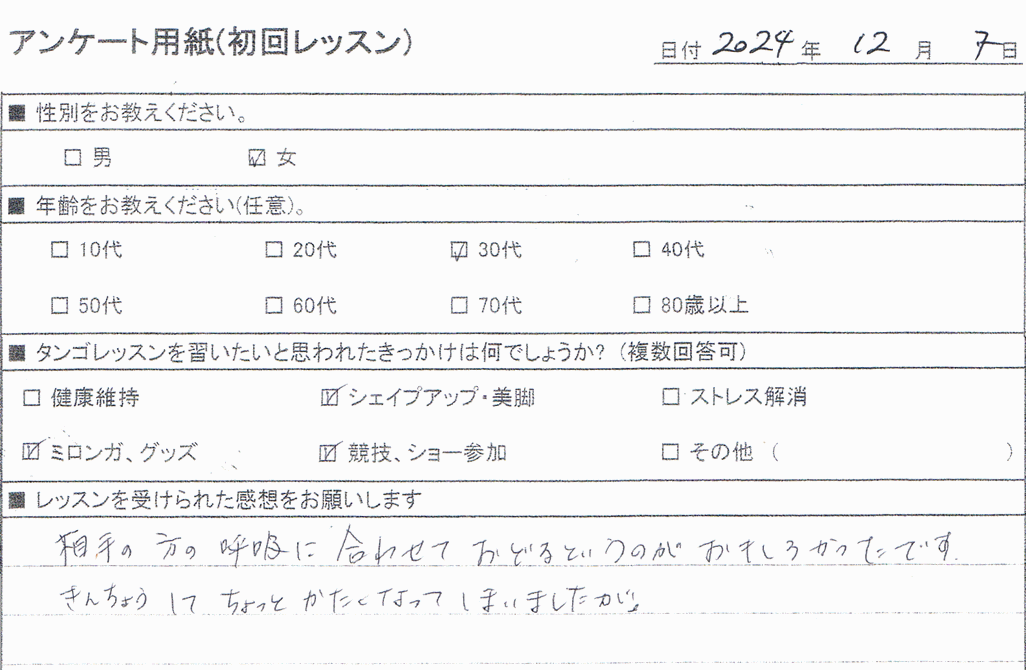 アンケート用紙(初回レッスン)
日付 2024 年 12 月 7 日
■ 性別をお教えください。
□ 男 ☑ 女
■ 年齢をお教えください(任意)。
□ 10代 □ 20代 ☑ 30代 □ 40代
□ 50代 □ 60代 □ 70代 □ 80歳以上
■ タンゴレッスンを習いたいと思われたきっかけは何でしょうか? (複数回答可)
□ 健康維持 ☑ シェイプアップ・美脚 □ ストレス解消
☑ ミロンガ、グッズ ☑ 競技、ショー参加 □ その他 ( )
■ レッスンを受けられた感想をお願いします
相手の方の呼吸に合わせておどるというのがおもしろかったです.
きんちょうしてちょっとかたくなってしまいましたが。